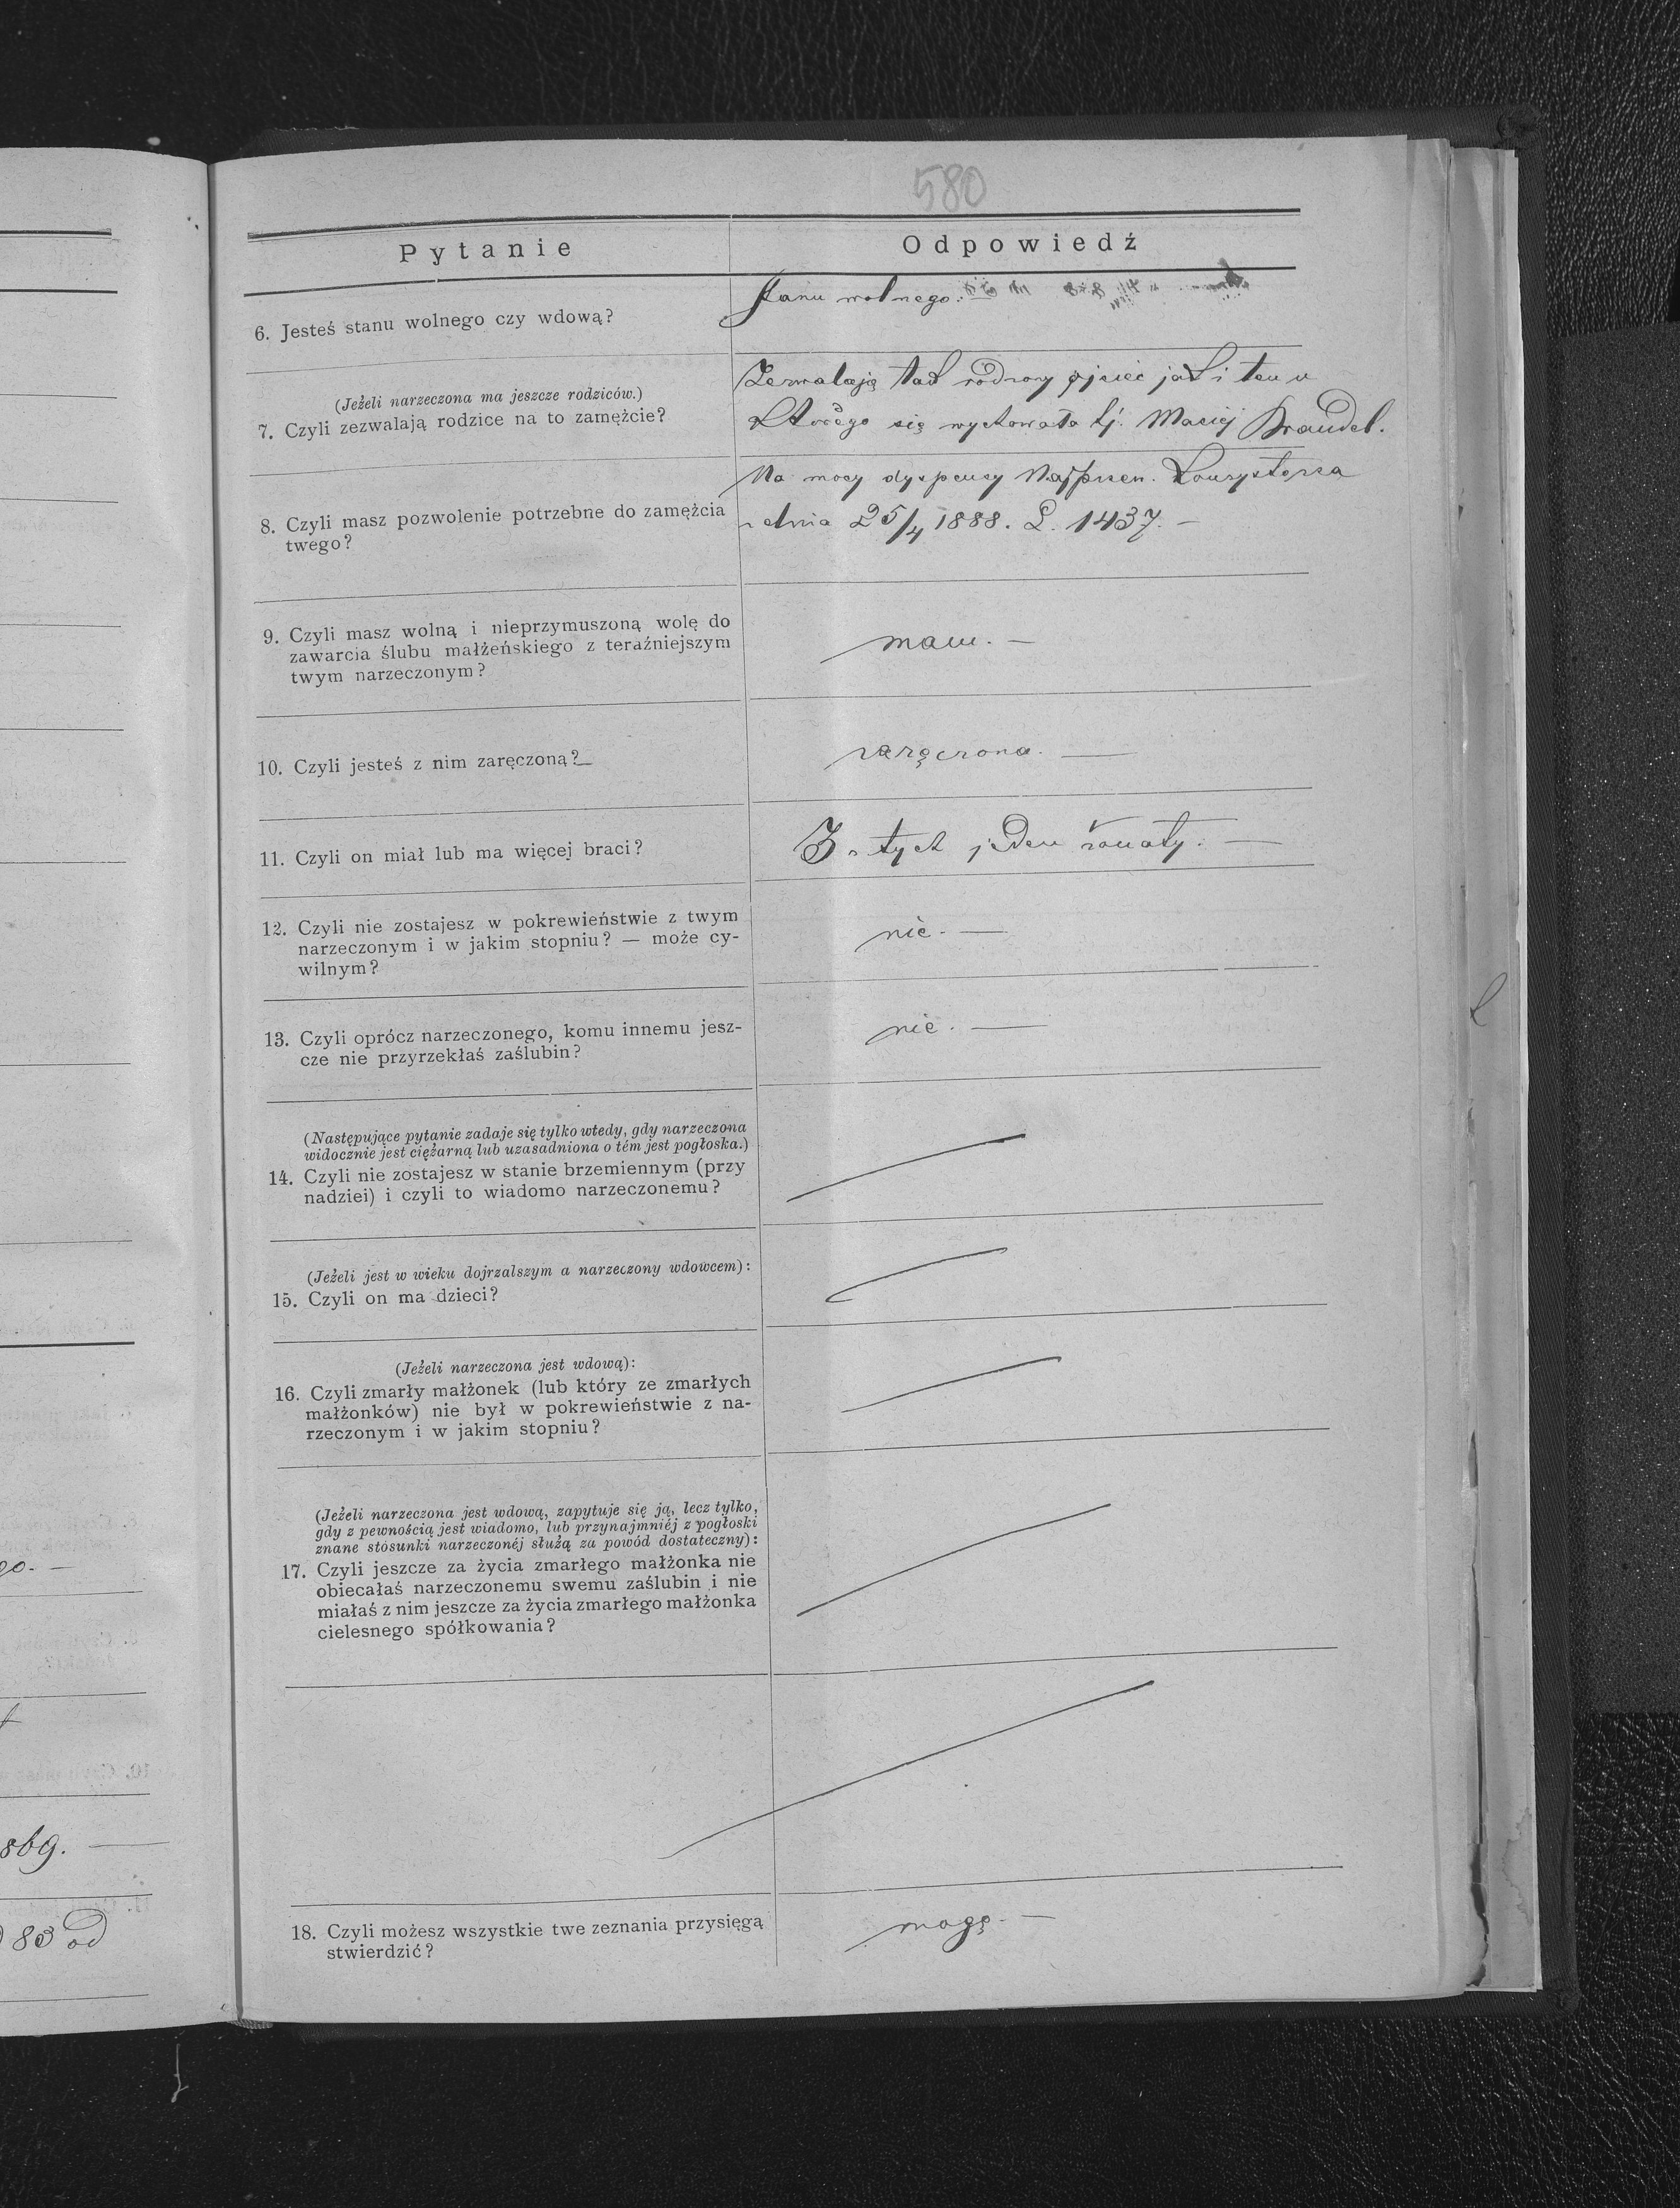 580
Pytanie
Odpowiedź
6. Jesteś stanu wolnego czy wdową?
stanu wolnego.
(Jeżeli narzeczona ma jeszcze rodziców.)
7. Czyli zezwalają rodzice na to zamężcie?
Zezwalają tak rodzony ojciec jak i ten u
którego się wychowała tj. Maciej
8. Czyli masz pozwolenie potrzebne do zamężcia
twego?
Na mocy dyspensy Najprzew. Konsystorza
z dnia 25/4 1888. L. 1437. –
9. Czyli masz wolną i nieprzymuszoną wolę do
zawarcia ślubu małżeńskiego z teraźniejszym
twym narzeczonym?
mam. –
10. Czyli jesteś z nim zaręczoną?
zaręczona. —
11. Czyli on miał lub ma więcej braci?
3 z tych jeden żonaty. —
12. Czyli nie zostajesz w pokrewieństwie z twym
narzeczonym i w jakim stopniu? — może cy-
wilnym?
nie. —
13. Czyli oprócz narzeczonego, komu innemu jesz-
cze nie przyrzekłaś zaślubin?
nie. —
(Następujące pytanie zadaje się tylko wtedy, gdy narzeczona
widocznie jest ciężarną lub uzasadniona o tém jest pogłoska.)
14. Czyli nie zostajesz w stanie brzemiennym (przy
nadziei) i czyli to wiadomo narzeczonemu?
(Jeżeli jest w wieku dojrzalszym a narzeczony wdowcem):
15. Czyli on ma dzieci?
(Jeżeli narzeczona jest wdową):
16. Czyli zmarły małżonek (lub który ze zmarłych
małżonków) nie był w pokrewieństwie z na-
rzeczonym i w jakim stopniu?
(Jeżeli narzeczona jest wdową, zapytuje się ją, lecz tylko,
gdy z pewnością jest wiadomo, lub przynajmniéj z pogłoski
znane stosunki narzeczonéj służą za powód dostateczny):
17. Czyli jeszcze za życia zmarłego małżonka nie
obiecałaś narzeczonemu swemu zaślubin i nie
miałaś z nim jeszcze za życia zmarłego małżonka
cielesnego spółkowania?
18. Czyli możesz wszystkie twe zeznania przysięgą
stwierdzić?
mogę. –
go. –
869. —
83 od